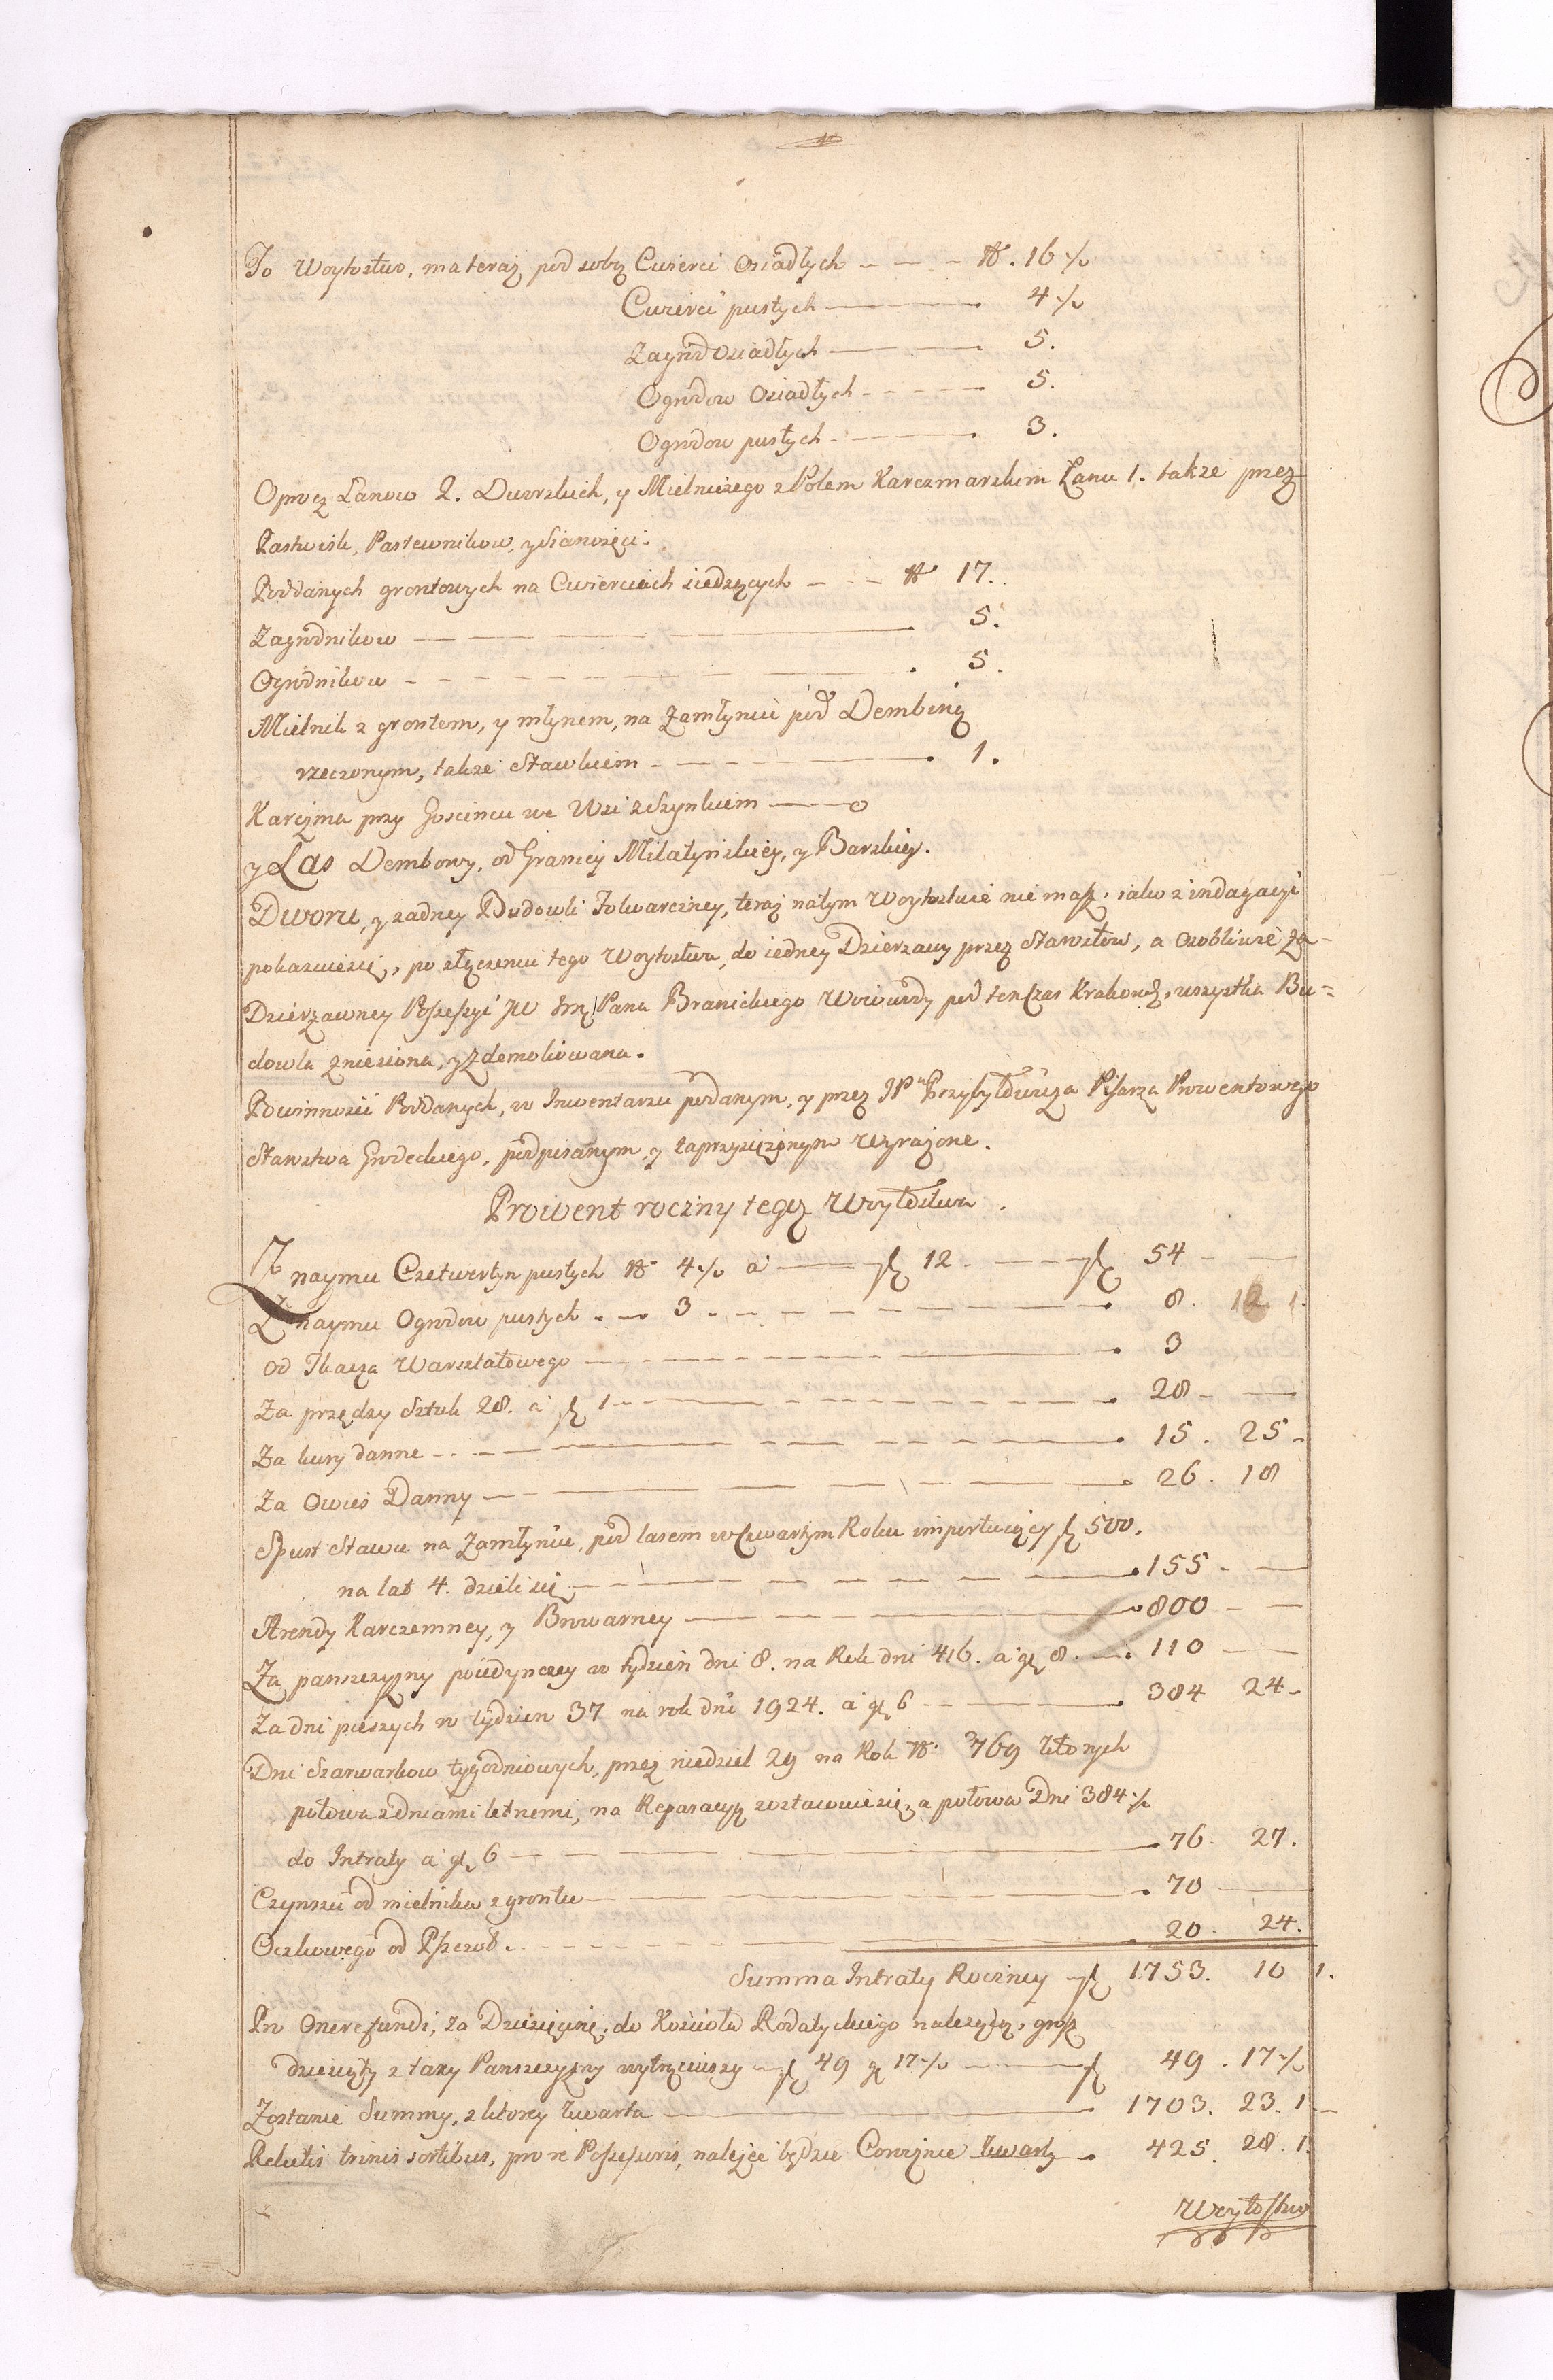 To Woytostwo, ma teraz pod sobą Cwierci Osiadłych — — — № . 16 ./.
Cwierci pustych — 4 ./.
Zagród Osiadłych — 5.
Ogrodow Osiadłych — 5.
Ogrodow pustych — 3.
Oprocz Łanow 2. Dworskich, y Mielniczego z Polem Karczmarskim Łanu 1. także przez
Pastwisk, Pastewnikow, y Sianożęci.
Poddanych grontowych na Cwierciach siedzących — — — № 17.
Zagrodnikow — 5.
Ogrodnikow — 5.
Mielnik z grontem, y młynem, na Zamłyniu pod Dembiną
rzeczonym, także Stawkiem — 1.
Karczma przy Goscincu we Wsi z Szynkiem —
y Las Dembowy, od Granicy Milatyńskiey, y Barskiey.
Dworu, y zadney Budowli Folwarczney, teraz na tym Woytostwie nie masz, iako z indagacyi
pokazuie się, po złączeniu tego Woytostwa, do iedney Dzierzawy przez Starostow, a osobliwie za
Dzierzawney Possessyi JW Jmć Pana Branickiego Woiewody pod tenczas Krakowsk: wszystka Bu=
dowla zniesiona, y zdemoliowana.
Powinność Poddanych, w Inwentarzu podanym, y przez JPna Przybyłowicza Pisarza Prowentowego
Starostwa Grodeckiego, podpisanym, y zaprzysiężonym wyrażone.
Prowent roczny tegoż Woytostwa.
Z naymu Czetwertyn pustych № 4 ./. à — zł 12 — zł 54 —
Z naymu Ogrodow pustych — 3 — 8. 12 1.
od Tkacza Warsztatowego — 3
Za przędzy Sztuk 28. à zł 1 — 28 —
Za kury danne — 15. 25 —
Za Owies Danny — 26. 18
Spust Stawu na Zamłyniu, pod lasem w Czwartym Roku importuiący zł 500.
na lat 4. dzieli się — 155 —
Arendy Karczemney, y Browarney — 800 —
Za panszczyzny poiedynczey w tydzień dni 8. na Rok dni 416. à gr 8. — 110 —
Za dni pieszych w tydzien 37 na rok dni 1924. à gr 6 — 384 24 —
Dni Szarwarkow tygodniowych, przez niedziel 29 na Rok № 769 ktorych
połowa z dniami letnemi, na Reparacyą zostawuie się, a połowa Dni 384 ./.
do Intraty à gr 6 — 76. 27.
Czynszu od mielnika z grontu — 70 —
Oczkowego od Pszczoł — 20. 24.
Summa Intraty Roczney — zł 1753. 10 1.
Pro Onere fundi, za Dziesięcinę, do Kościoła Rodatyckiego nalezącą, grosz
dziewiąty z taxy Panszczyzny wytrąciwszy — zł 49 gr 17 ./. — zł 49. 17 ./.
Zostanie Summy, z ktorey kwarta — 1703. 23. 1 —
Relictis trinis sortibus, pro re Possessoris, należec będzie Coroznie kwarty — 425. 28. 1.
Woytostwo